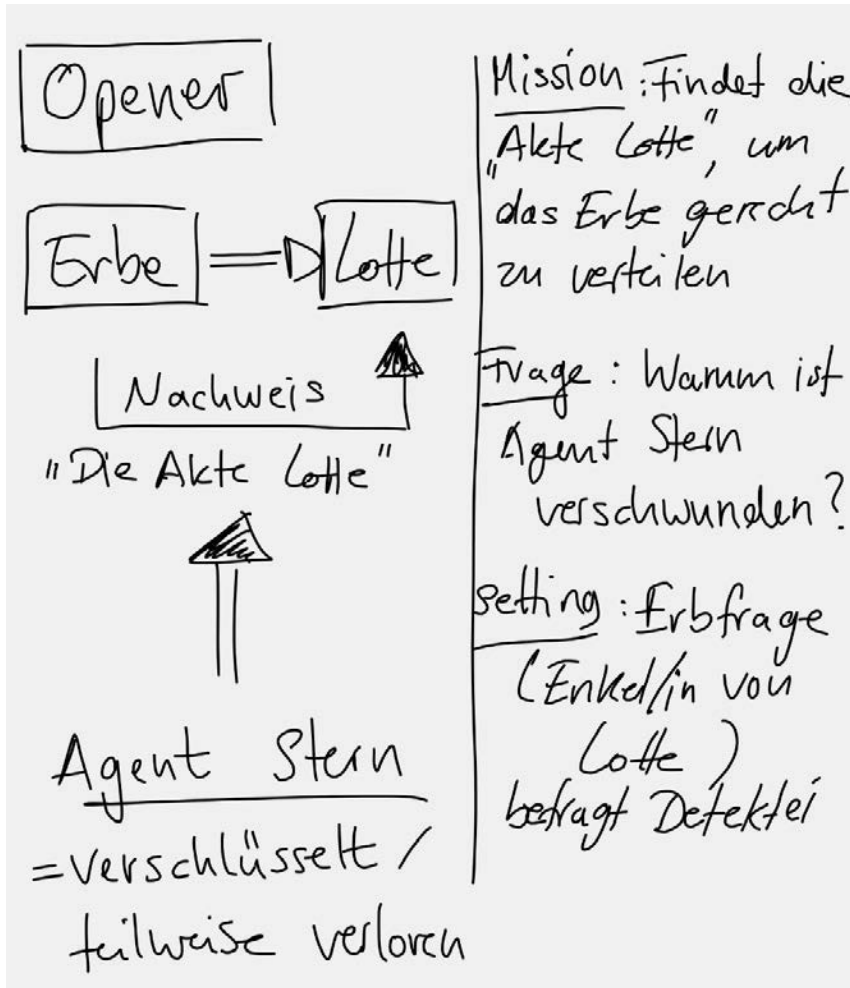 Opener
Erbe
Lotte
Nachweis
"Die Akte Lotte"
Agent Stern
= verschlüsselt /
teilweise verloren
Mission : Findet die
"Akte Lotte", um
das Erbe gerecht
zu verteilen
Frage : Warum ist
Agent Stern
verschwunden?
Setting : Erbfrage
(Enkel/in von
Lotte)
befragt Detektei